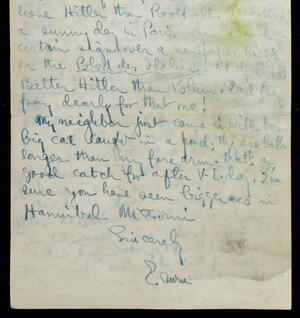 have Hitler than Roosevelt. I
a sunny day in Paris
certain sign over a newspaper
on the Blvd des Italiens
Better Hitler than Blum. Did they
pay dearly for that one!
My neighbor just came in with two
big cat caught in a pond, they are both
longer than my fore arm. that's a
good catch for after V-E day. I'm
sure you have seen bigger ones in
Hannibal Missouri
Sincerely